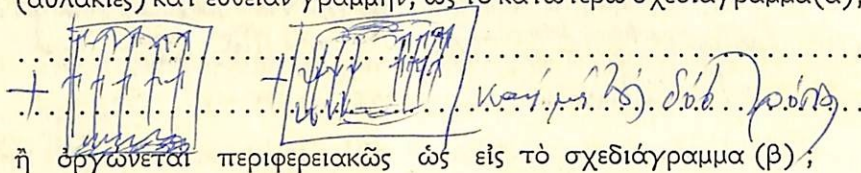 (αὐλακιές) κατ' εὐθεῖαν γραμμήν, ὡς τὸ κατωτέρω σχεδιάγραμμα (α),
+ + καὶ μὲ τοὺς δύο τρόπους
ἢ ὀργώνεται περιφερειακῶς ὡς εἰς τὸ σχεδιάγραμμα (β) ;